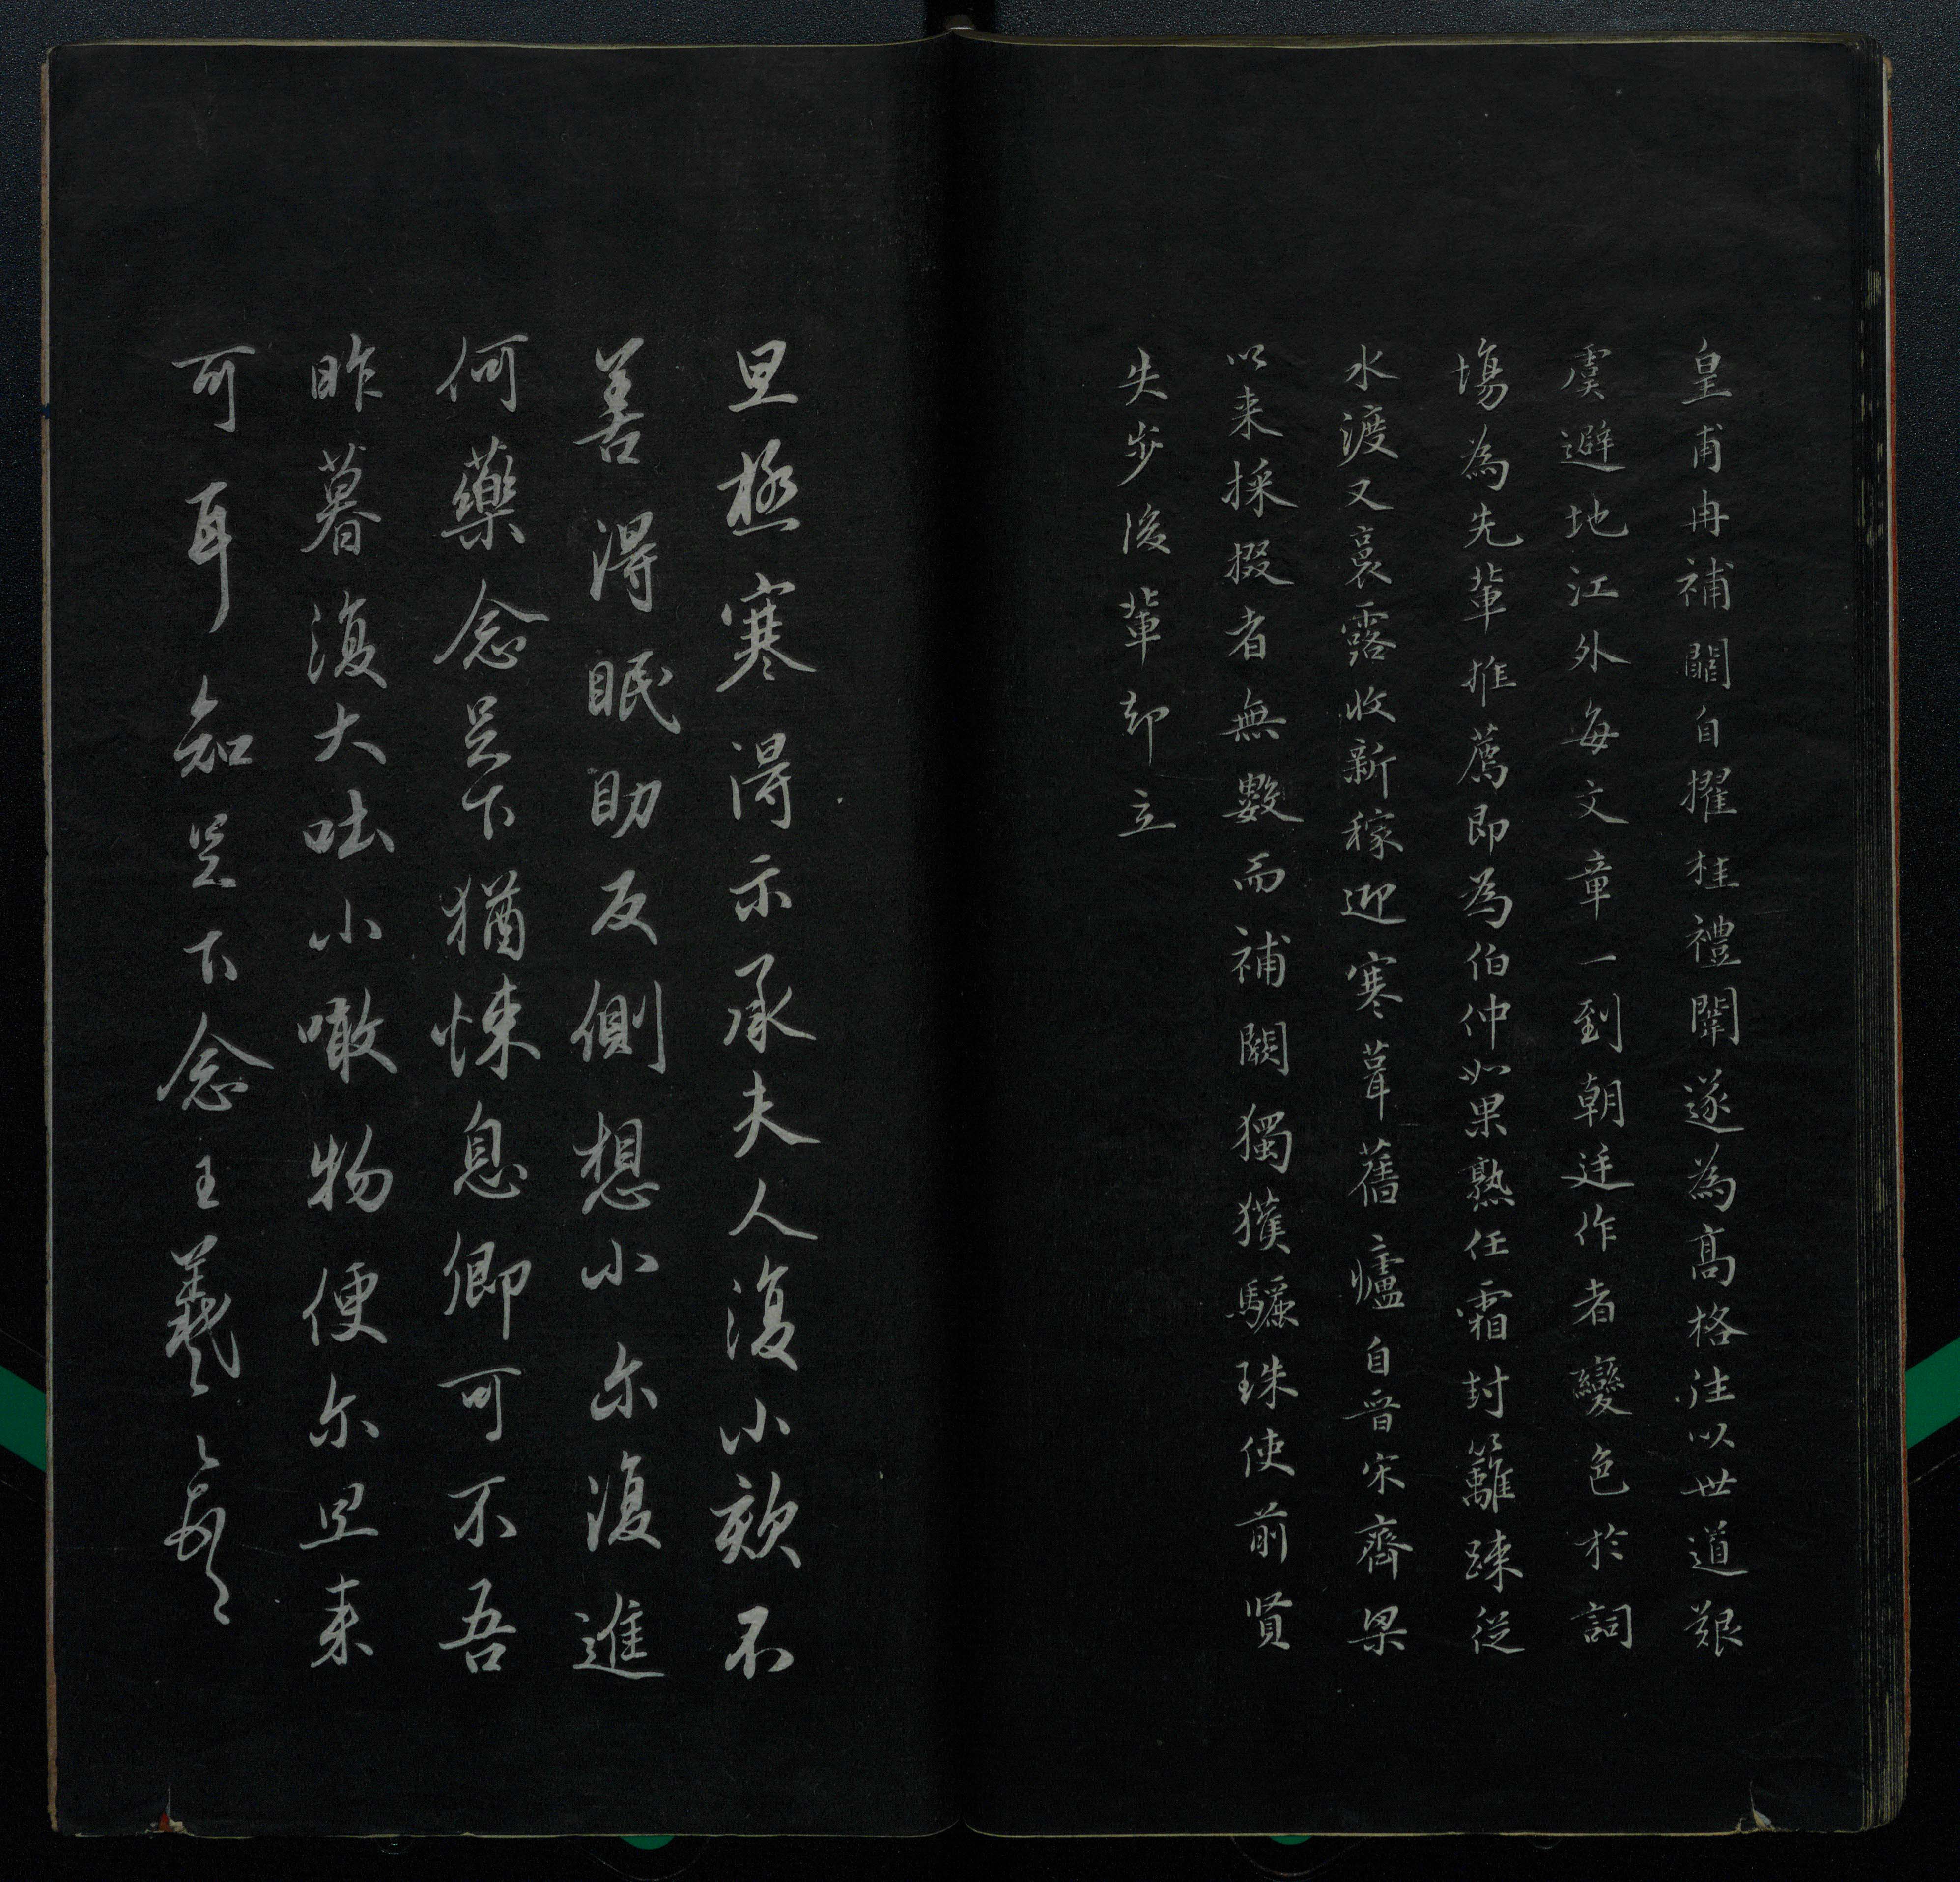 皇甫冉補闕自擢桂禮闈遂為高格往以世道艱
虞避地江外每文章一到朝廷作者變色於詞
場為先輩推薦即為伯仲如果熟任霜封籬踈從
水渡又裛露收新稼迎寒葺舊廬自晉宋齊梁
以来採掇者無數而補闕獨獲驪珠使前賢
失步後輩却立
旦極寒得示承夫人復小欬不
善得眠助反側想小尔復進
何藥念足下猶悚息卿可不吾
昨暮復大吐小噉物便尔旦来
可耳知足下念王羲之